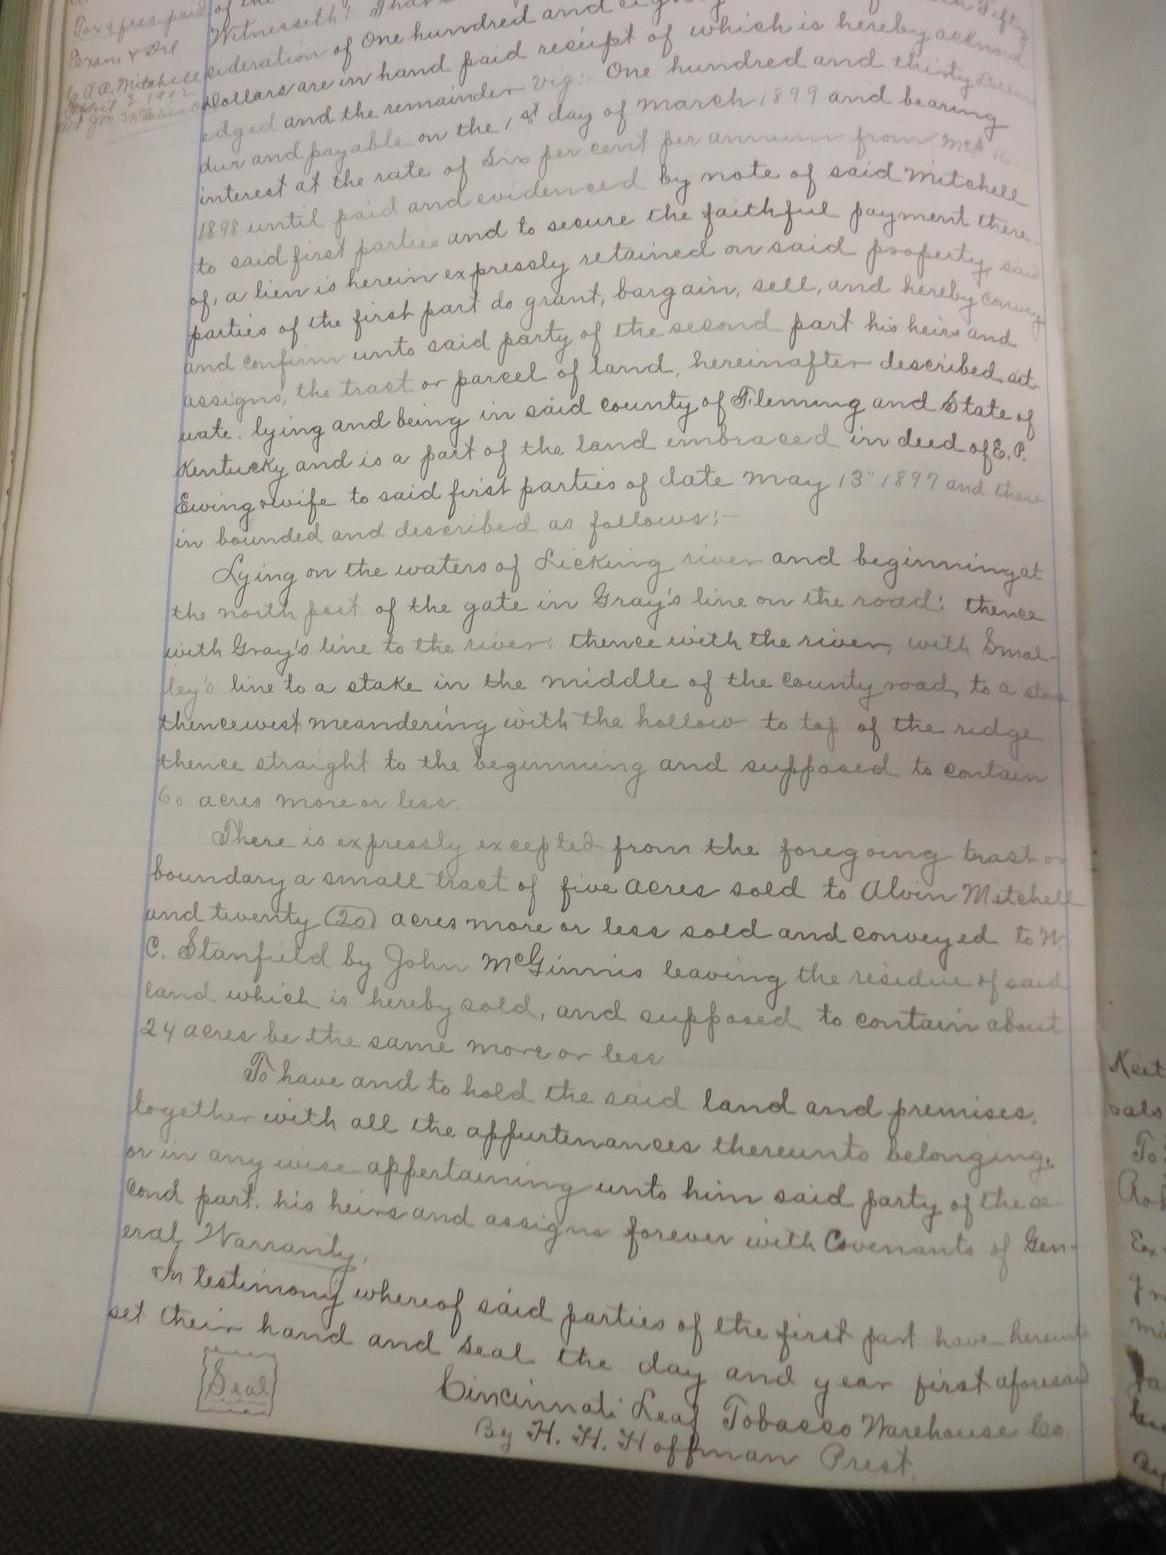 Tax & fees paid
Exam & Del
to A A. Mitchell
April 2 1902
of the
Witnesseth: That
sideration of One hundred and eighty Fifty
Dollars are in hand paid receipt of which is hereby acknowl
edged and the remainder viz:- One hundred and thirty Dollars
due and payable on the 1st day of March 1899 and bearing
interest at the rate of Six per cent per annum from Mch
1898 until paid and evidenced by note of said Mitchell
to said first parties and to secure the faithful payment there-
of, a lien is herein expressly retained on said property, said
parties of the first part do grant, bargain, sell, and hereby convey
and confirm unto said party of the second part his heirs and
assigns, the tract or parcel of land, hereinafter described sit
uate. lying and being in said county of Fleming and State of
Kentucky and is a part of the land embraced in deed of E. P.
Ewing & wife to said first parties of date May 13" 1897 and there
in bounded and described as follows:-
Lying on the waters of Licking river and beginning at
the north post of the gate in Gray's line on the road: thence
with Gray's line to the river: thence with the river, with Smal-
ley's line to a stake in the middle of the county road, to a stone
thence west meandering with the hollow to top of the ridge
thence straight to the beginning and supposed to contain
60 acres more or less.
There is expressly excepted from the foregoing tract or
boundary a small tract of five acres sold to Alvin Mitchell
and twenty (20) acres more or less sold and conveyed to W.
C. Stanfield by John McGinnis leaving the residue of said
land which is hereby sold, and supposed to contain about
24 acres be the same more or less
To have and to hold the said land and premises,
together with all the appurtenances thereunto belonging,
or in any wise appertaining unto him said party of the se
cond part, his heirs and assigns forever with Covenants of Gen-
eral Warranty.
In testimony whereof said parties of the first part have hereunto
set their hand and seal the day and year first aforesaid
Seal
Cincinnati Leaf Tobacco Warehouse Co.
By H. H. Hoffman Prest.